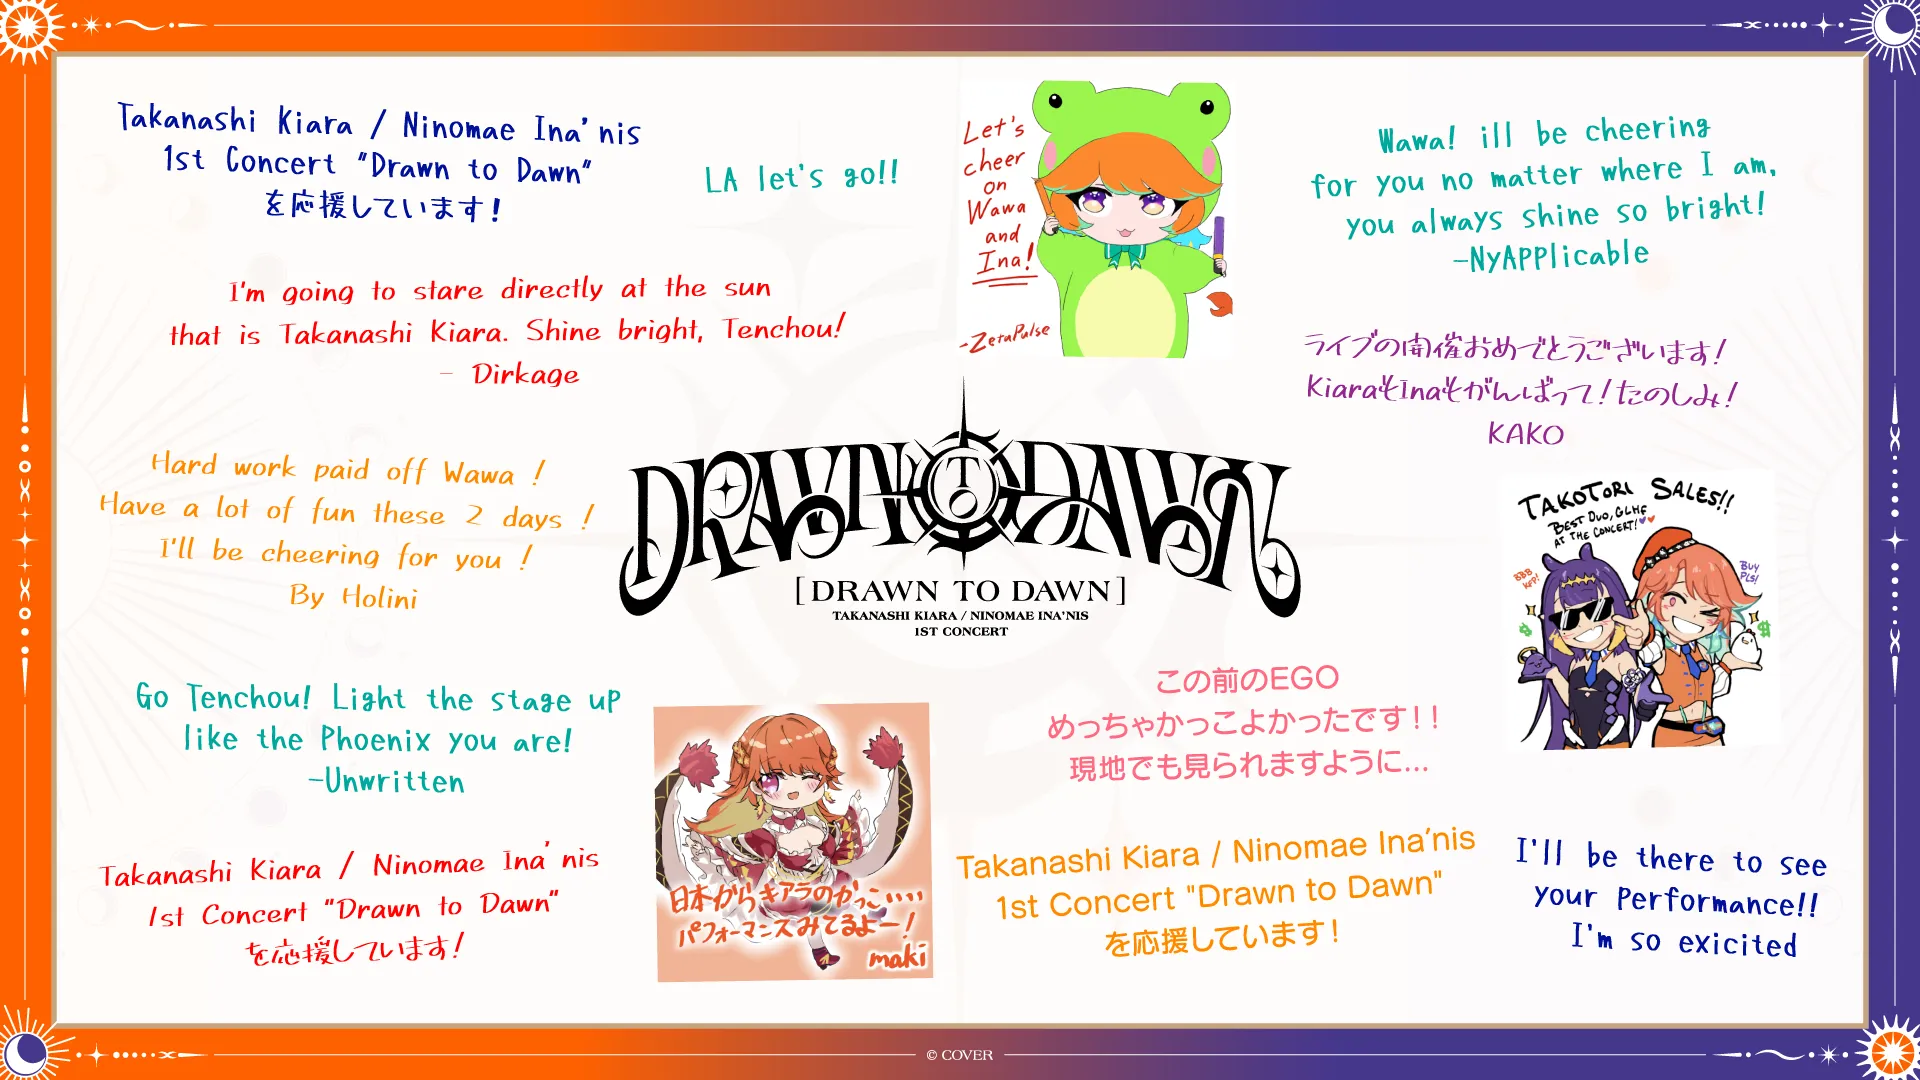 Takanashi Kiara / Ninomae Ina'nis
1st Concert "Drawn to Dawn"
を応援しています!
LA let's go!!
Let's
cheer
on
Wawa
and
Ina!
-ZetaPulse
Wawa! ill be cheering
for you no matter where I am,
you always shine so bright!
-NyAPPlicable
I'm going to stare directly at the sun
that is Takanashi Kiara. Shine bright, Tenchou!
- Dirkage
ライブの開催おめでとうございます!
KiaraもInaもがんばって!たのしみ!
KAKO
Hard work paid off Wawa !
Have a lot of fun these 2 days !
I'll be cheering for you !
By Holini
DRAWN TO DAWN
[DRAWN TO DAWN]
TAKANASHI KIARA / NINOMAE INA'NIS
1ST CONCERT
TAKOTORI SALES!!
BEST DUO, GLHF
AT THE CONCERT!
BBB
KFP!
BUY
PLS!
Go Tenchou! Light the stage up
like the Phoenix you are!
-Unwritten
この前のEGO
めっちゃかっこよかったです!!
現地でも見られますように...
Takanashi Kiara / Ninomae Ina'nis
1st Concert "Drawn to Dawn"
を応援しています!
日本からキアラのかっこいい
パフォーマンスみてるよー!
maki
Takanashi Kiara / Ninomae Ina'nis
1st Concert "Drawn to Dawn"
を応援しています!
I'll be there to see
your Performance!!
I'm so exicited
© COVER